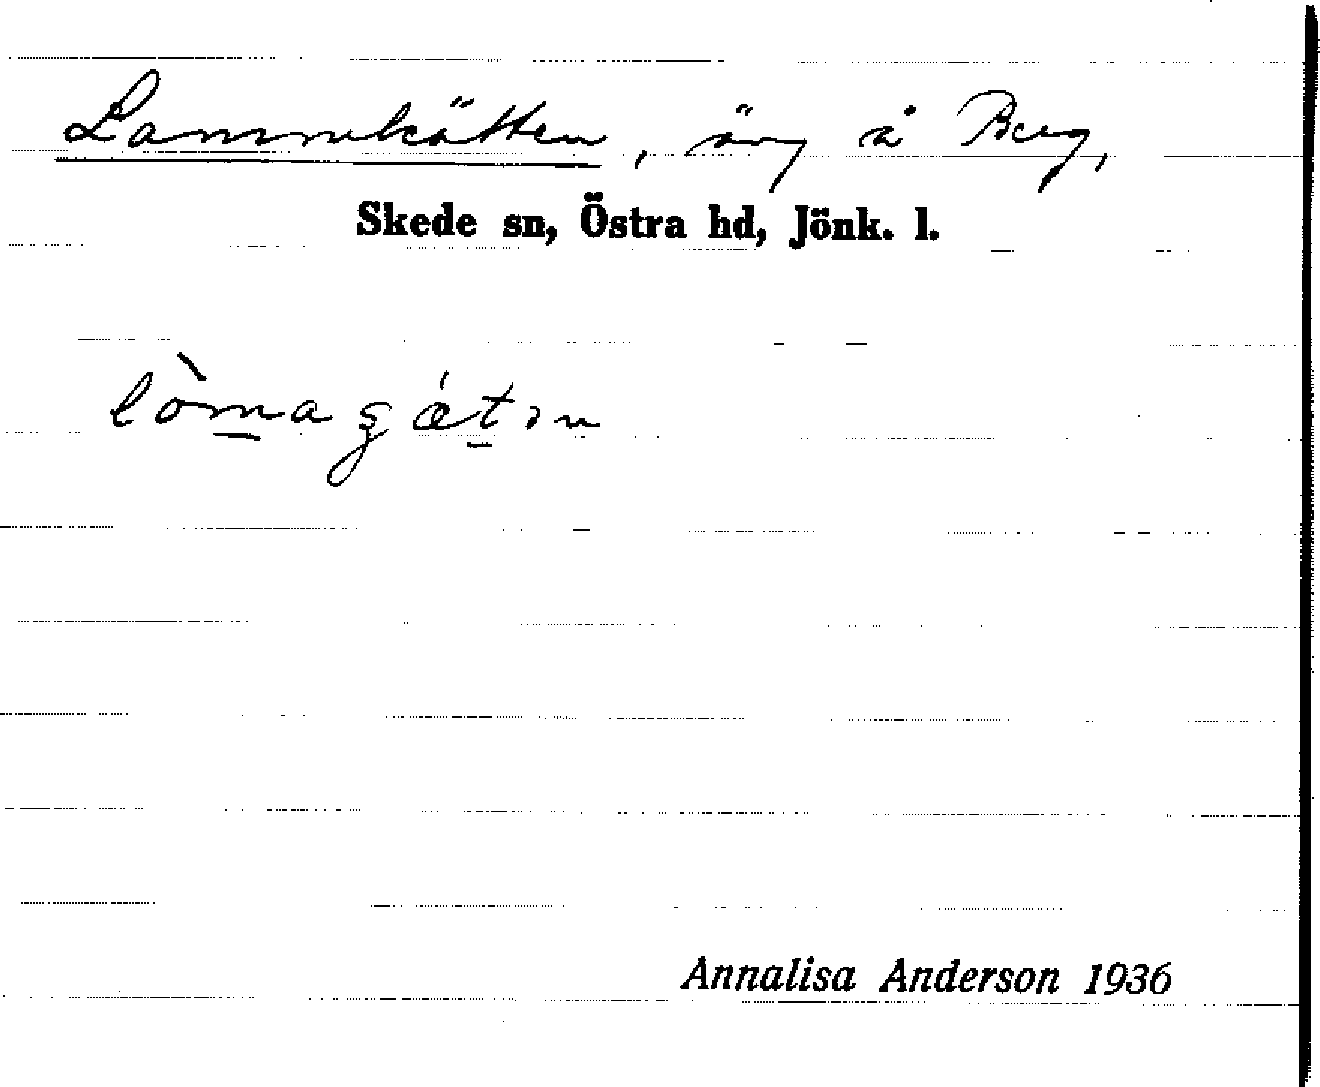 Lammkätten, äng å Berg,
Skede sn, Östra hd, Jönk. l.
Annalisa Anderson 1936